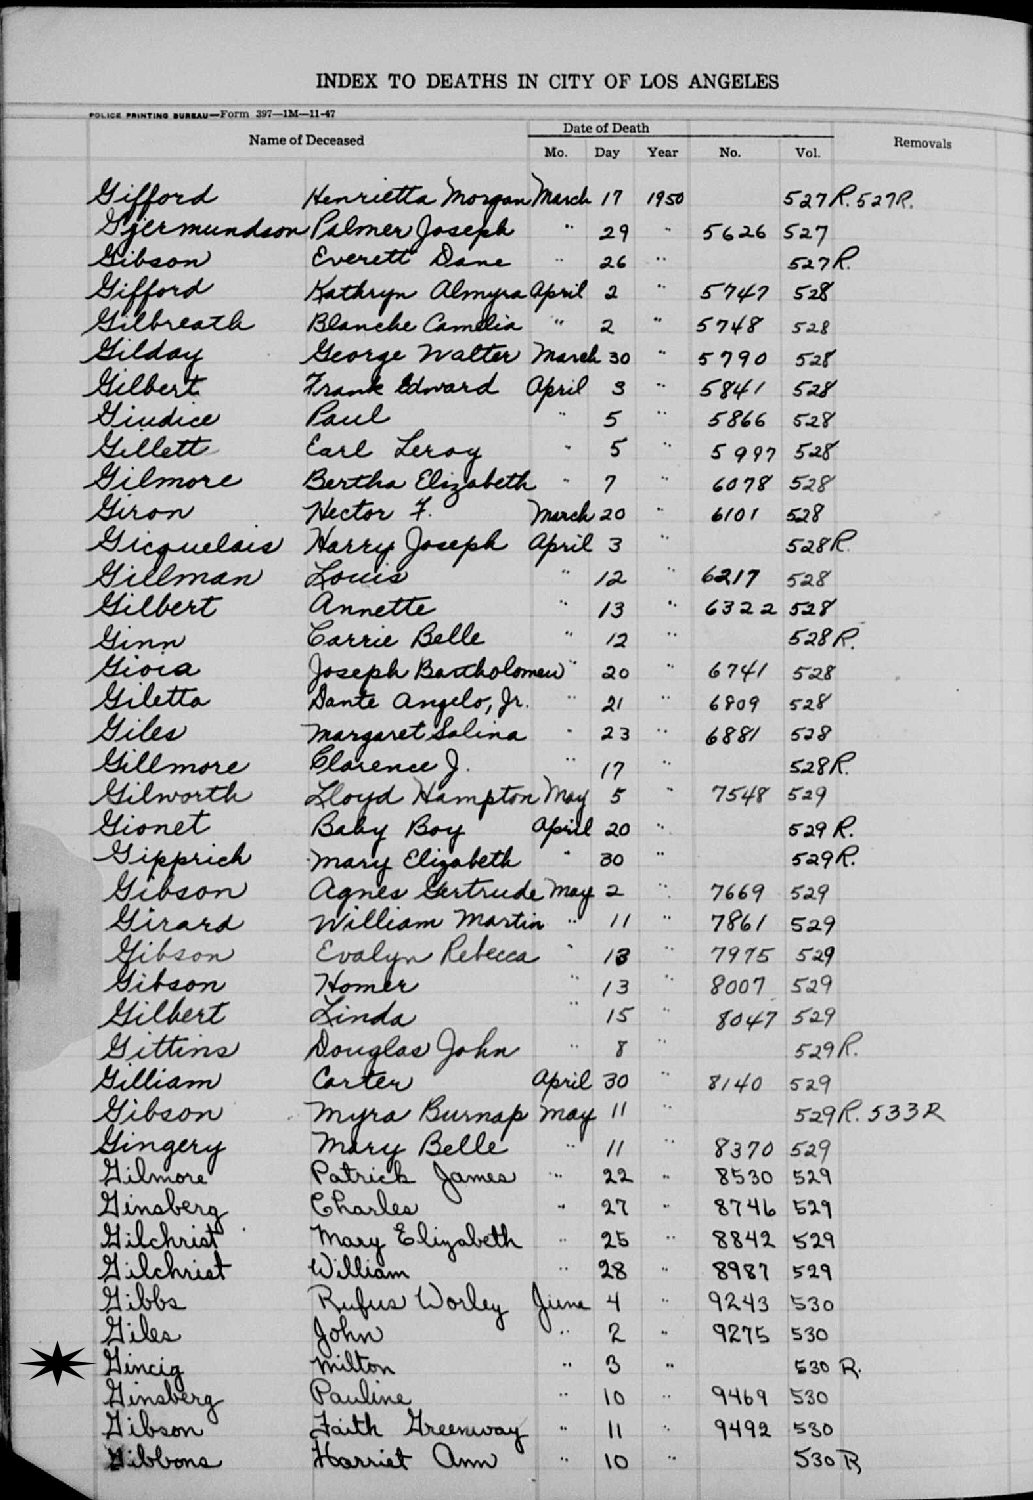 INDEX TO DEATHS IN CITY OF LOS ANGELES
POLICE PRINTING BUREAU—Form 397—1M—11-47
Name of Deceased Date of Death Removals
Mo. Day Year No. Vol.
Gifford Henrietta Morgan March 17 1950 527 R. 527R.
Gjermundson Palmer Joseph " 29 " 5626 527
Gibson Everett Dane " 26 " 527R.
Gifford Kathryn Almyra April 2 " 5747 528
Gilbreath Blanche Camelia " 2 " 5748 528
Gilday George Walter March 30 " 5790 528
Gilbert Frank Edward April 3 " 5841 528
Giudice Paul " 5 " 5866 528
Gillett Earl Leroy " 5 " 5997 528
Gilmore Bertha Elizabeth " 7 " 6078 528
Giron Hector F. March 20 " 6101 528
Gicquelais Harry Joseph April 3 " 528R.
Gillman Louis " 12 " 6217 528
Gilbert Annette " 13 " 6322 528
Ginn Carrie Belle " 12 " 528R.
Gioia Joseph Bartholomew " 20 " 6741 528
Giletta Dante Angelo, Jr. " 21 " 6809 528
Giles Margaret Salina " 23 " 6881 528
Gillmore Clarence J. " 17 " 528R.
Gilworth Lloyd Hampton May 5 " 7548 529
Gionet Baby Boy April 20 " 529 R.
Gipprich Mary Elizabeth " 30 " 529R.
Gibson Agnes Gertrude May 2 " 7669 529
Girard William Martin " 11 " 7861 529
Gibson Evalyn Rebecca " 13 " 7975 529
Gibson Homer " 13 " 8007 529
Gilbert Linda " 15 " 8047 529
Gittins Douglas John " 8 " 529R.
Gilliam Carter April 30 " 8140 529
Gibson Myra Burnap May 11 " 529R. 533R
Gingery Mary Belle " 11 " 8370 529
Gilmore Patrick James " 22 " 8530 529
Ginsberg Charles " 27 " 8746 529
Gilchrist Mary Elizabeth " 25 " 8842 529
Gilchrist William " 28 " 8987 529
Gibbs Rufus Worley June 4 " 9243 530
Giles John " 2 " 9275 530
Gincig Milton " 3 " 530 R.
Ginsberg Pauline " 10 " 9469 530
Gibson Faith Greenway " 11 " 9492 530
Gibbons Harriet Ann " 10 " 530 R